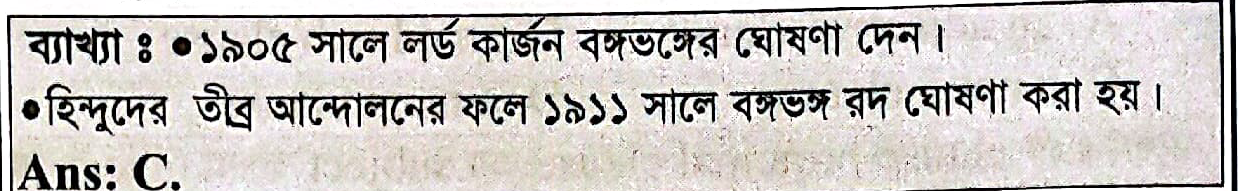 ব্যাখ্যা ঃ ●১৯০৫ সালে লর্ড কার্জন বঙ্গভঙ্গের ঘোষণা দেন।
●হিন্দুদের তীব্র আন্দোলনের ফলে ১৯১১ সালে বঙ্গভঙ্গ রদ ঘোষণা করা হয়।
Ans: C.